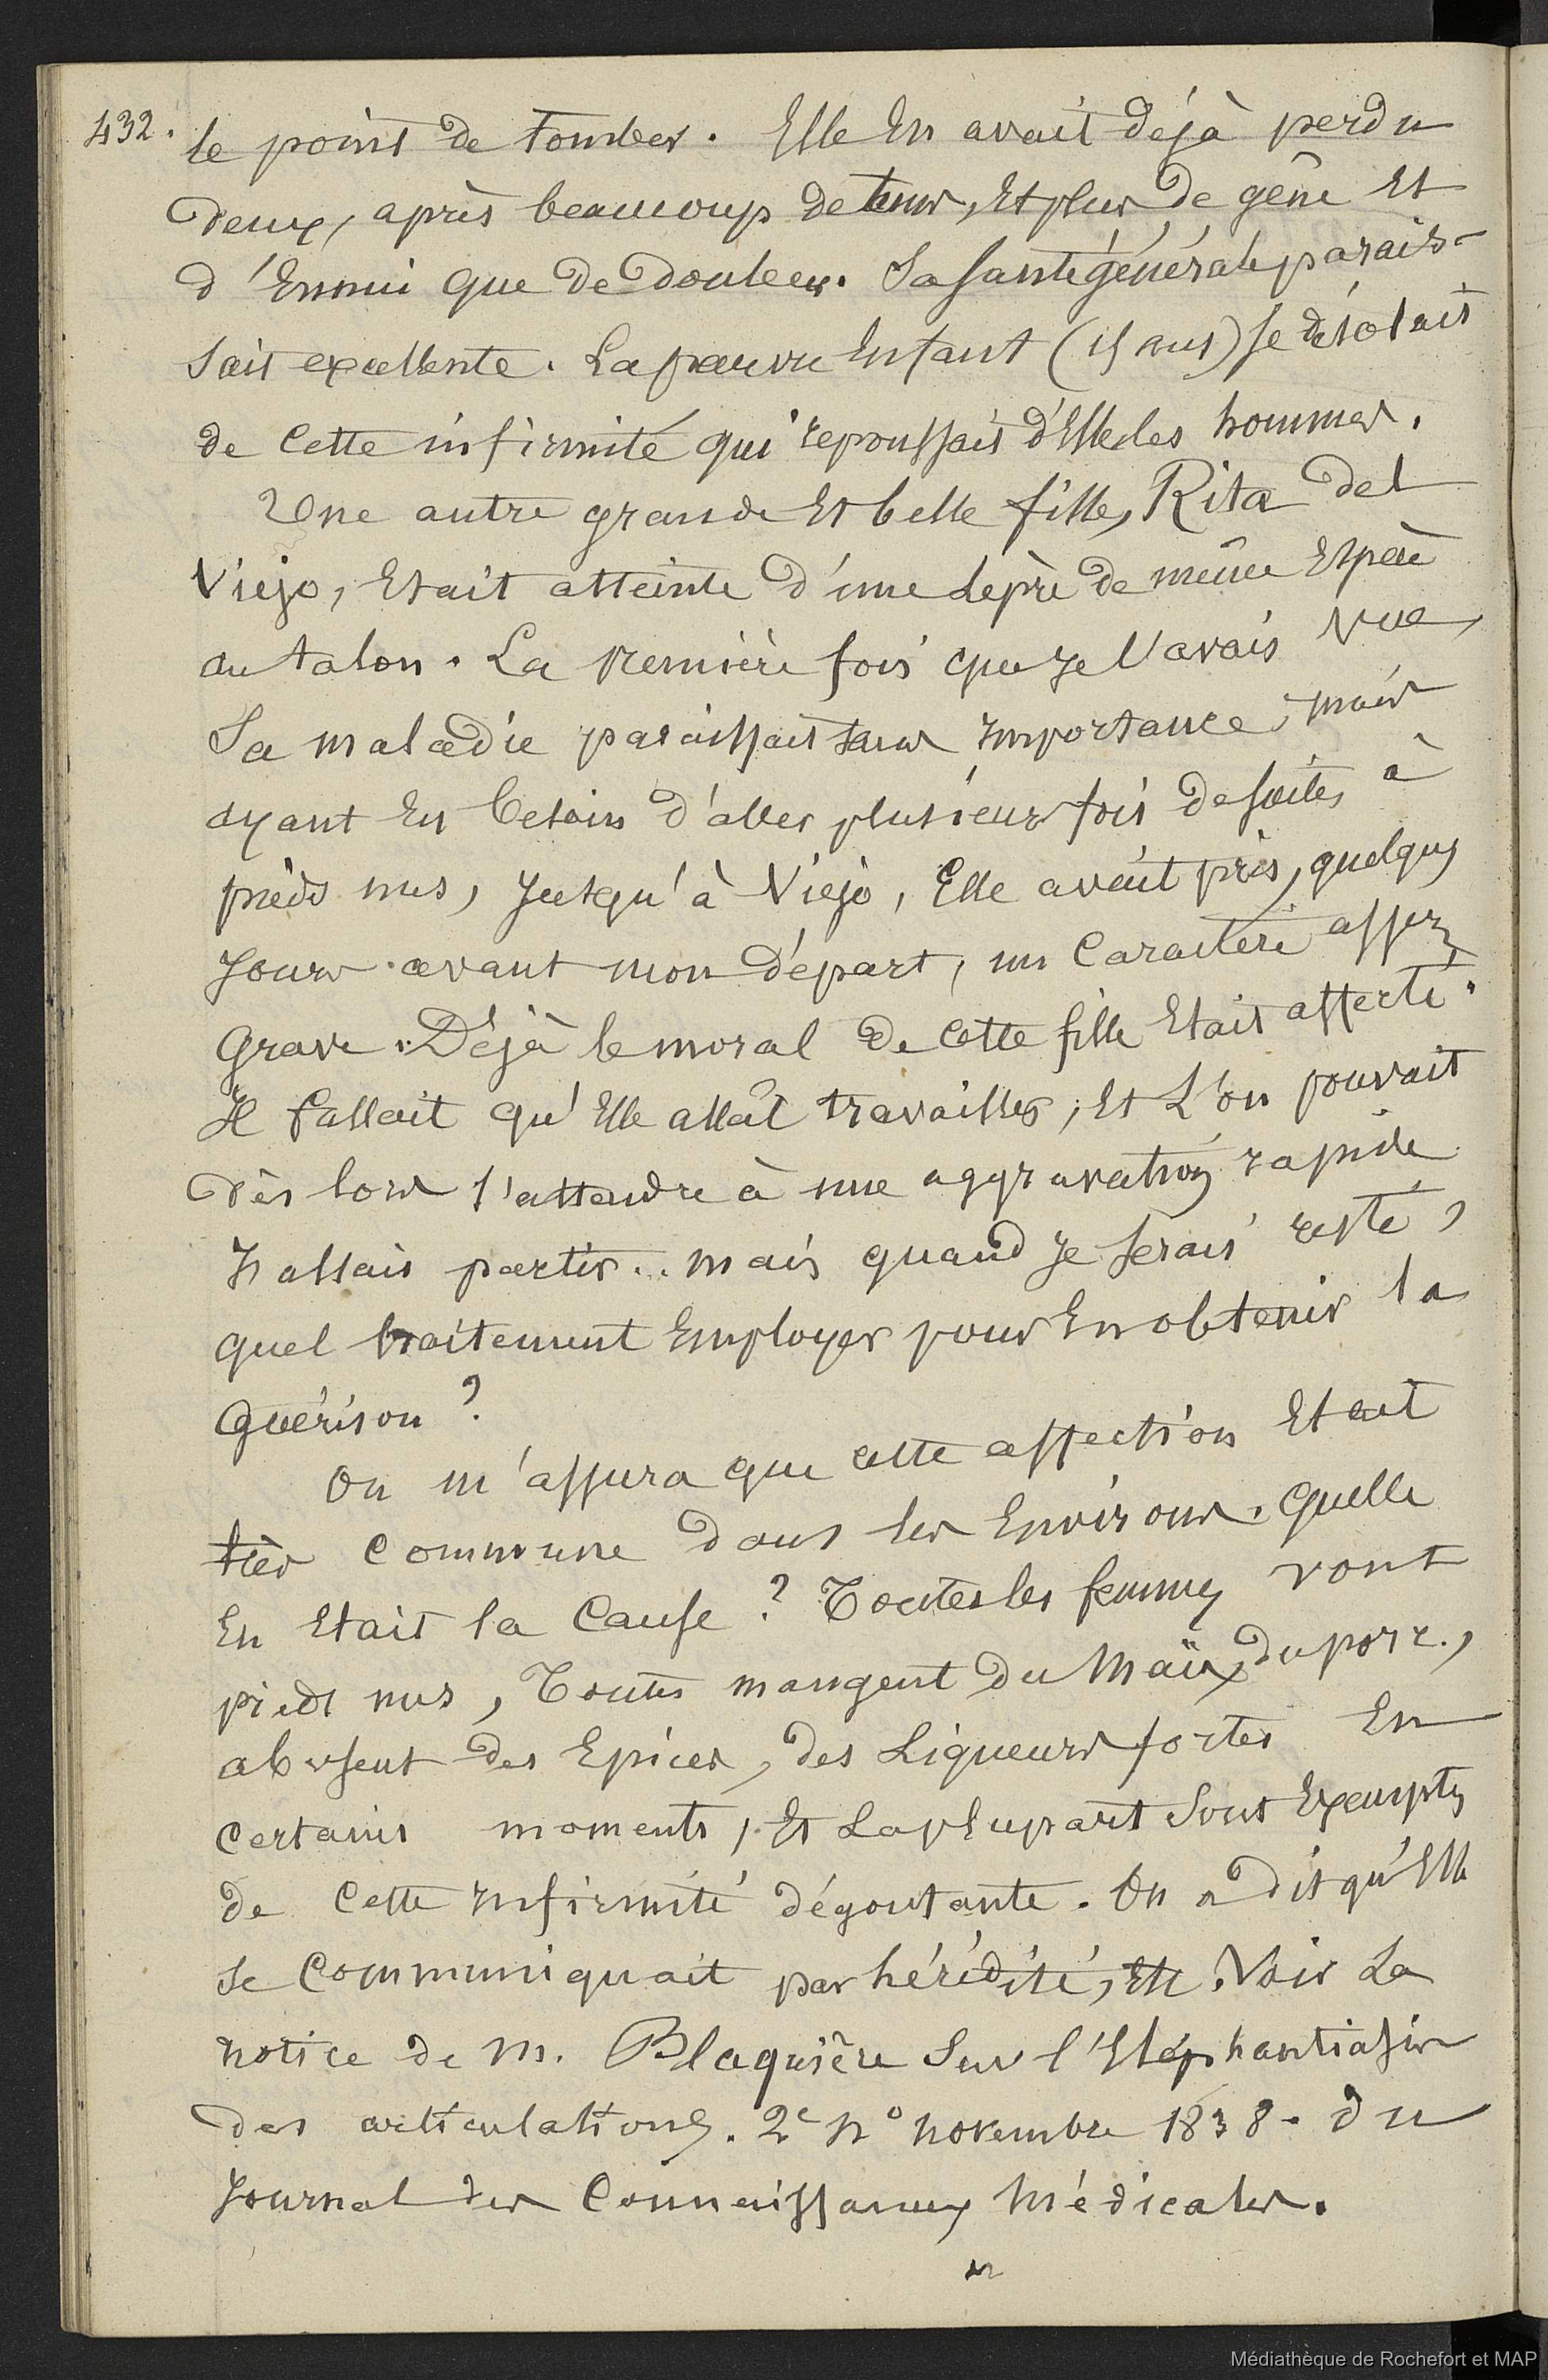 432. le point de tomber. Elle en avait déjà perdu
deux, après beaucoup de tems, et plus de gêne et
d'ennui que de douleur. Sa santé générale parais-
sait excellente. La pauvre enfant (15 ans) se désolait
de cette infirmité qui repoussait d'elle les hommes.
Une autre grande et belle fille, Rita del
Viejo, etait atteinte d'une lèpre de même espèce
au talon. La première fois que je l'avais vue,
sa maladie paraissait sans importance, mais
ayant eu besoin d'aller plusieurs fois de suite, à
pieds nus, jusqu'à Viejo, elle avait pris, quelques
jours avant mon départ, un caractère assez
grave. Déjà le moral de cette fille etait affecté.
Il fallait qu'elle allât travailler, et l'on pouvait
dès lors s'attendre à une aggravation rapide.
J'allais partir... mais quand je serais resté,
quel traitement employer pour en obtenir la
guérison?
On m'assura que cette affection etait
très commune dans les environs. Quelle
en etait la cause? Toutes les femmes vont
pieds nus, toutes mangent du maïs, du porc,
abusent des epices, des liqueurs fortes en
certains moments, et la plupart sont exemptes
de cette infirmité dégoutante. On a dit qu'elle
se communiquait par hérédité, etc. Voir la
notice de M. Blaquière sur l'Eléphantiasis
des articulations. 2e no novembre 1838. du
Journal des Connaissances Médicales.
Médiathèque de Rochefort et MAP